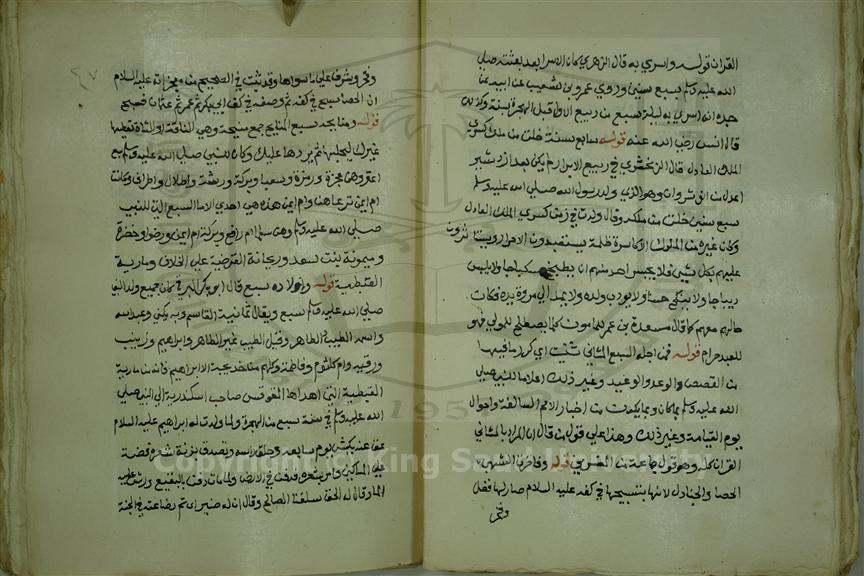 القران قوله واسري به قال الزهري كان الاسرا بعد بعثته صلي
الله عليه وسلم بسبع سنين وروي عمرو بن شعيب عن ابيه عن
جده انه اسري به ليلة سبع من ربيع الاول قبل الهجرة بسنة وكذلك
قال انس رضي الله عنه قوله سابع سنة خلت من ملك كسري
الملك العادل قال الزمخشري في ربيع الابرار لم يكن بعد ازدشير
اعدل من انوشروان وهو الذي ولد رسول الله صلي الله عليه وسلم
سبع سنين خلت من ملكه وقال ولدت في زمن كسري الملك العادل
وكان غيره من الملوك الاكاسرة ظلمة يستعبدون الاحرار
عليهم بكل شيي فلا يجسر احد منهم ان يطبخ سكباجا ولا يلبس
ديباجا ولا ينكح حسنا ولا يودب ولده ولا يمد الي مروة يده فكانت
حالهم معهم كما قال مسعدة بن عمر للمامون كلما يصطلح للمولي فهو
للعبد حرام قوله فمن اجله السبع المثاني ثنيت اي كرر ما فيها
من القصص والوعد والوعيد وغير ذلك اعلاما للنبي صلي
الله عليه وسلم بما كان وبما يكون من اخبار الامم السالفة واحوال
يوم القيامة وغير ذلك وهذا علي قول من قال ان المراد بالمثاني
القران كله وهو قول جماعة من المفسرين قوله وفاخرت الشهب
الحصا والجنادل لانها بتسبيحها في كفه عليه السلام صار لها فضل
وفخر
٤٧
وفخر وشرف علي ما سواها وقد ثبت في الصحيح من معجزاته عليه السلام
ان الحصا سبح في كفه ثم وضعه في كف ابي بكر ثم عمر ثم عثمان فسبح
قوله ومنايحه سبع المنايح جمع منيحة وهي الناقة او الشاة تعطيها
غيرك ليحلبها ثم يردها عليك وكان للنبي صلي الله عليه وسلم سبع
اعنز وهن عجزة وزمزة وسقيا وبركة وورشة واطلال واطراف وكانت
ام ايمن ترعاهن وام ايمن هذه هي احدي الاما السبع التي للنبي
صلي الله عليه وسلم وهن سلما ام رافع وبركة ام ايمن ورضوا وخضرة
وميمونة بنت سعد وريحانة القرضية علي الخلاف ومارية
القبطية قوله واولاده سبع قال ابن البر كان جميع ولد النبي
صلي الله عليه وسلم سبع ويقال ثمانية القاسم وبه يكني وعبد الله
واسمه الطيب والطاهر وقيل الطيب غير الطاهر وابراهيم وزينب
ورقيه وام كلثوم وفاطمة وكلهم من خديجة الا ابراهيم فانه من مارية
القبطية التي اهداها المقوقس صاحب اسكندرية الي النبي صلي
الله عليه وسلم في سنة سبع من الهجرة ولما ولدت له ابراهيم عليه السلام
عق عنه بكبش يوم سابعه وحلق راسه وتصدق بزنة شعره فضة
علي المساكين وامر بشعره فدفن في الارض ولما مات دفن بالبقيع ورش عليه
الما وقال له الحق بسلفنا الصالح وقال ان له ضئرا تتم رضاعته في الجنة
Copyright © King Saud University
195